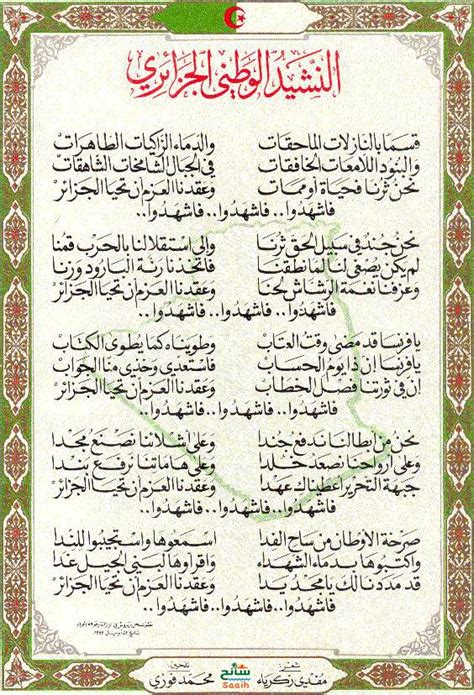 النشيد الوطني الجزائري
قسما بالنازلات الماحقات والدماء الزاكيات الطاهرات
والبنود اللامعات الخافقات في الجبال الشامخات الشاهقات
نحن ثرنا فحياة أو ممات وعقدنا العزم أن تحيا الجزائر
فاشهدوا.. فاشهدوا.. فاشهدوا..
نحن جند في سبيل الحق ثرنا وإلى استقلالنا بالحرب قمنا
لم يكن يصغى لنا لما نطقنا فاتخذنا رنة البارود وزنا
وعزفنا نغمة الرشاش لحنا وعقدنا العزم أن تحيا الجزائر
فاشهدوا.. فاشهدوا.. فاشهدوا..
يا فرنسا قد مضى وقت العتاب وطويناه كما يطوى الكتاب
يا فرنسا إن ذا يوم الحساب فاستعدي وخذي منا الجواب
إن في ثورتنا فصل الخطاب وعقدنا العزم أن تحيا الجزائر
فاشهدوا.. فاشهدوا.. فاشهدوا..
نحن من أبطالنا ندفع جندا وعلى أشلائنا نصنع مجدا
وعلى أرواحنا نصعد خلدا وعلى هاماتنا نرفع بندا
جبهة التحرير أعطيناك عهدا وعقدنا العزم أن تحيا الجزائر
فاشهدوا.. فاشهدوا.. فاشهدوا..
صرخة الأوطان من ساح الفدا اسمعوها واستجيبوا للندا
واكتبوها بدماء الشهداء واقرأوها لبني الجيل غدا
قد مددنا لك يا مجد يدا وعقدنا العزم أن تحيا الجزائر
فاشهدوا.. فاشهدوا.. فاشهدوا..
شعر: تلحين:
مفدي زكرياء محمد فوزي
سائح
Saaih